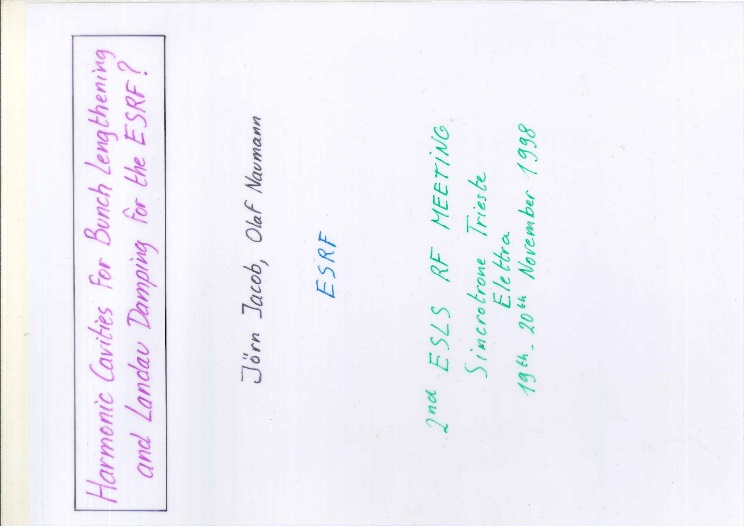 Harmonic Cavities for Bunch Lengthening
and Landau Damping for the ESRF?
Jörn Jacob, Olaf Naumann
ESRF
2nd ESLS RF MEETING
Sincrotrone Trieste
Elettra
19th - 20th November 1998